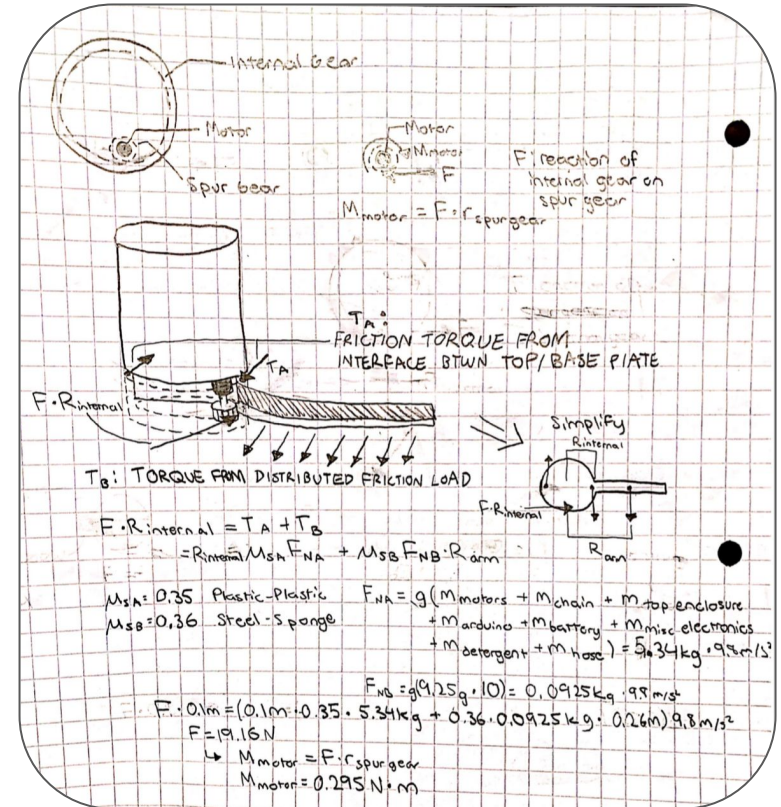 Internal Gear
Motor
Spur Gear
Motor
Mmotor
F
F: reaction of
internal gear on
spur gear
Mmotor = F · rspurgear
TA:
FRICTION TORQUE FROM
INTERFACE BTWN TOP/BASE PLATE
TA
F·Rinternal
Simplify
Rinternal
TB: TORQUE FROM DISTRIBUTED FRICTION LOAD
F·Rinternal
Rarm
F·Rinternal = TA + TB
= Rinternal MSA FNA + MSB FNB · Rarm
MSA = 0.35 Plastic-Plastic
MSB = 0.36 Steel-Sponge
FNA = g(mmotors + mchain + mtop enclosure
+ marduino + mbattery + mmisc electronics
+ mdetergent + mhose) = 5.34kg · 9.8m/s²
FNB = g(9.25g · 10) = 0.0925kg · 9.8 m/s²
F · 0.1m = (0.1m · 0.35 · 5.34kg + 0.36 · 0.0925kg · 0.26m) 9.8m/s²
F = 19.16N
↳ Mmotor = F · rspurgear
Mmotor = 0.295 N·m